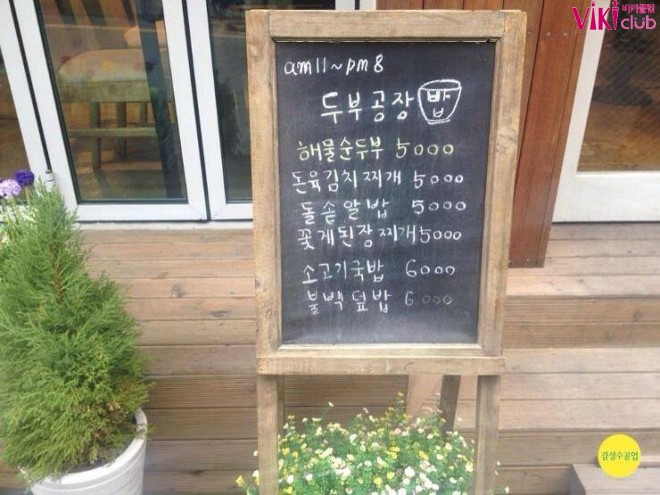 ViKi 비키클럽
club
am11~pm8
두부공장 밥
해물순두부 5000
돈육김치찌개 5000
돌솥알밥 5000
꽃게된장찌개 5000
소고기국밥 6000
불백덮밥 6000
감성수공업